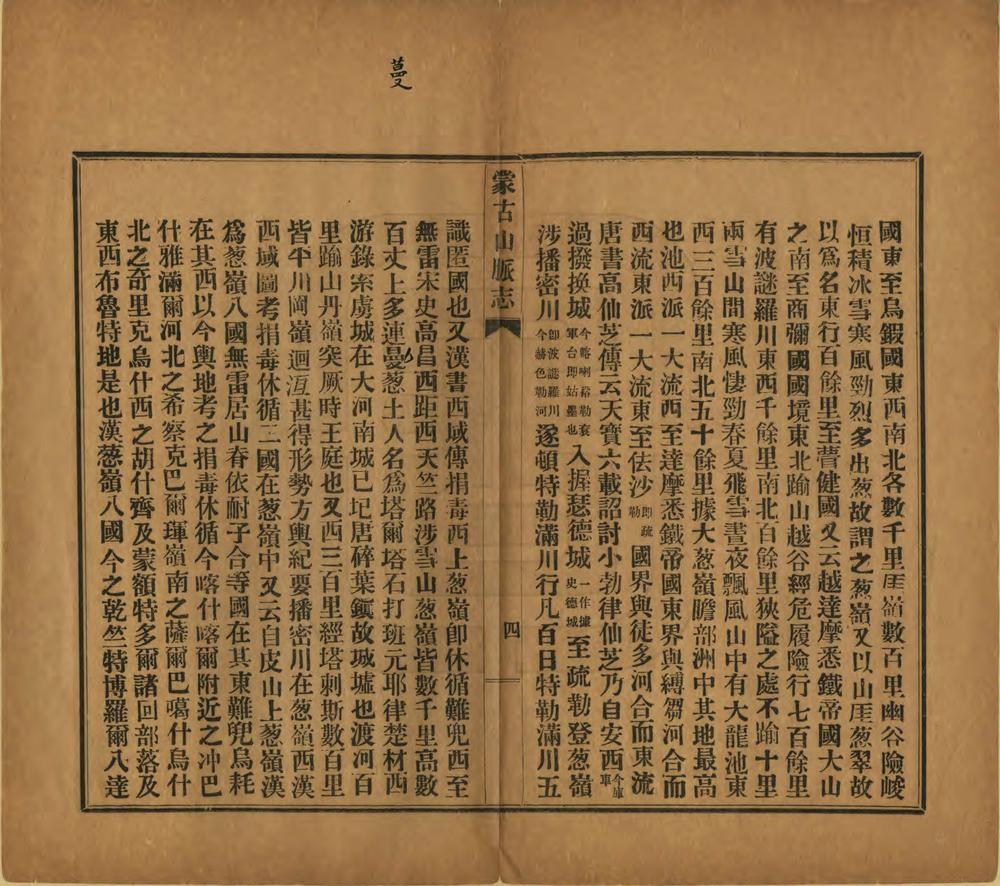 國東至烏鎩國東西南北各數千里厓嶺數百里幽谷險峻
恒積冰雪寒風勁烈多出葱故謂之葱嶺又以山厓葱翠故
以爲名東行百餘里至瞢健國又云越達摩悉鐵帝國大山
之南至商彌國國境東北踰山越谷經危履險行七百餘里
有波謎羅川東西千餘里南北百餘里狹隘之處不踰十里
兩雪山間寒風悽勁春夏飛雪晝夜飄風山中有大龍池東
西三百餘里南北五十餘里據大葱嶺瞻部洲中其地最高
也池西派一大流西至達摩悉鐵帝國東界與縛芻河合而
西流東派一大流東至佉沙卽疏勒國界與徒多河合而東流
唐書高仙芝傳云天寶六載詔討小勃律仙芝乃自安西今庫車
過撥換城今喀喇裕勒衮軍台卽姑墨也入握瑟德城一作據史德城至疏勒登葱嶺
涉播密川卽波謎羅川今赫色勒河遂頓特勒滿川行凡百日特勒滿川五
蒙古山脈志
四
識匿國也又漢書西域傳捐毒西上葱嶺卽休循難兜西至
無雷宋史高昌西距西天竺路涉雪山葱嶺皆數千里高數
百丈上多連曼葱土人名爲塔爾塔石打班元耶律楚材西
游錄索虜城在大河南城已圮唐碎葉鎭故城墟也渡河百
里踰山丹嶺突厥時王庭也又西三百里經塔剌斯數百里
皆平川岡嶺迴沍甚得形勢方輿紀要播密川在葱嶺西漢
西域圖考捐毒休循二國在葱嶺中又云自皮山上葱嶺漢
爲葱嶺八國無雷居山脊依耐子合等國在其東難兜烏耗
在其西以今輿地考之捐毒休循今喀什喀爾附近之冲巴
什雅滿爾河北之希察克巴爾琿嶺南之薩爾巴噶什烏什
北之奇里克烏什西之胡什齊及蒙額特多爾諸回部落及
東西布魯特地是也漢葱嶺八國今之乾竺特博羅爾八達
蔓